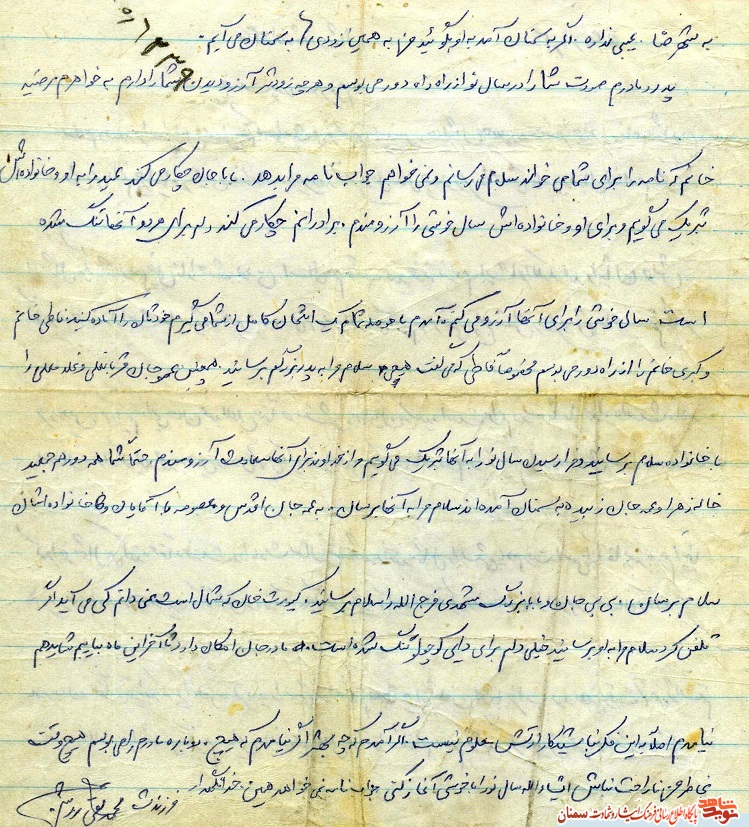 به شهر ضا. عیبی ندارد. اگر به سمنان آمد به او بگوئید من به همین زودی ها به سمنان می آیم.
پدر و مادرم صورت شما را در سال نو از راه دور می بوسم و هر چه زودتر آرزو دیدن شما را دارم به خواهرم مرضیه
خانم که نامه را برای شما می خواند سلام می رسانم و نمی خواهم جواب نامه مرا بدهد. باباجان چکار می کند عید را به او و خانواده اش
تبریک می گویم و برای او و خانواده اش سال خوشی را آرزومندم. برادرانم چکار می کنند دلم برای هر دو آنها تنگ شده
است. سال خوشی را برای آنها آرزو می کنم آمدم با حوصله تمام یک امتحان کامل از شما می گیرم خودتان را آماده کنید. فاطی خانم
و کبری خانم را از راه دور می بوسم مخصوصاً فاطی که می گفت هیچی سلام مرا به پدربزرگم برسانید. همچنین عمو جان قربانعلی و غلامعلی را
با خانواده سلام برسانید و فرا رسیدن سال نو را به آنها تبریک می گویم و از خداوند برای آنها سعادت آرزومندم. حتماً شما همه دور هم جمعید
خاله زهرا و عمه جان زبیده به سمنان آمده اند سلام مرا به آنها برسان. به عمه جان اقدس و معصومه با آقایان و خانواده اشان
سلام برسان. بی بی جان و بابابزرگ مشهدی فرج الله را سلام برسانید. کیومرث خان که شمال است نمی دانم کی می آید اگر
تلفن کرد سلام مرا به او برسانید خیلی دلم برای دایی کوچولو تنگ شده است. مادرجان امکان دارد تا آخر این ماه بیایم شاید هم
نیامدم اصلاً به این فکر نباشید کار ارتش معلوم نیست. اگر آمدم که چه بهتر اگر نیامدم که هیچ. دوباره مادرم را می بوسم هیچ وقت
بخاطر من ناراحت نباش انشاءالله سال نو را با خوشی آغاز کنی جواب نامه نمی خواهد همین. خدانگهدار
فرزندت محمدتقی
نوید شاهد
پایگاه اطلاع رسانی فرهنگ ایثار و شهادت سمنان